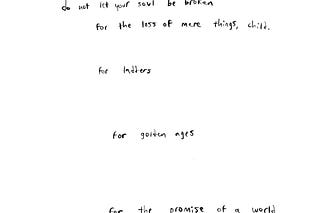 do not let your soul be broken
for the loss of mere things, child.
for ladders
for golden ages
for the promise of a world